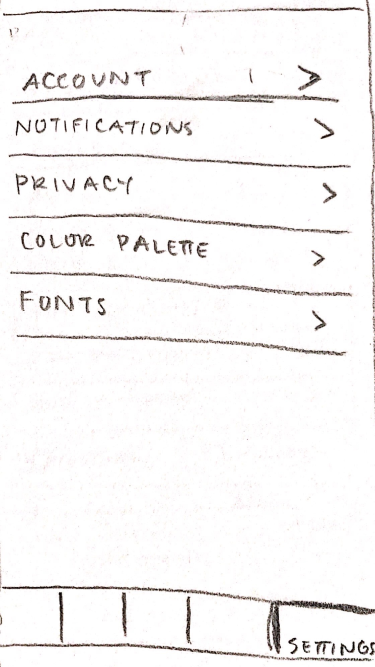 ACCOUNT >
NOTIFICATIONS >
PRIVACY >
COLOR PALETTE >
FONTS >
SETTINGS